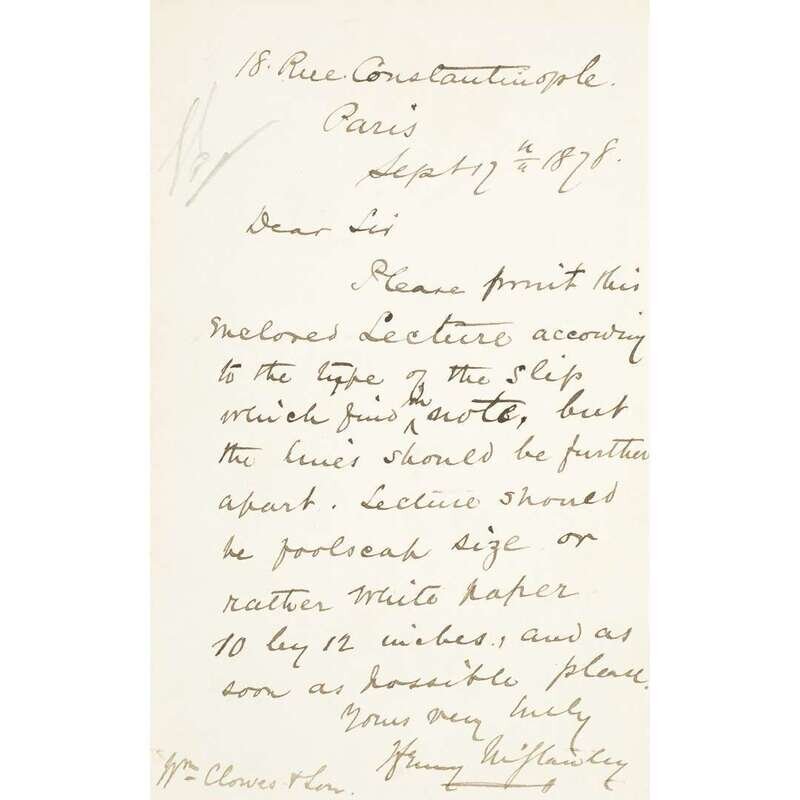 18. Rue. Constantinople.
Paris
Sept 17th 1878.
Dear Sir
Please print this
enclosed Lecture according
to the type of the slip
which find in note, but
the lines should be further
apart. Lecture should
be foolscap size or
rather white paper
10 by 12 inches, and as
soon as possible please.
Yours very truly
Henry M Stanley
Wm Clowes & Son.